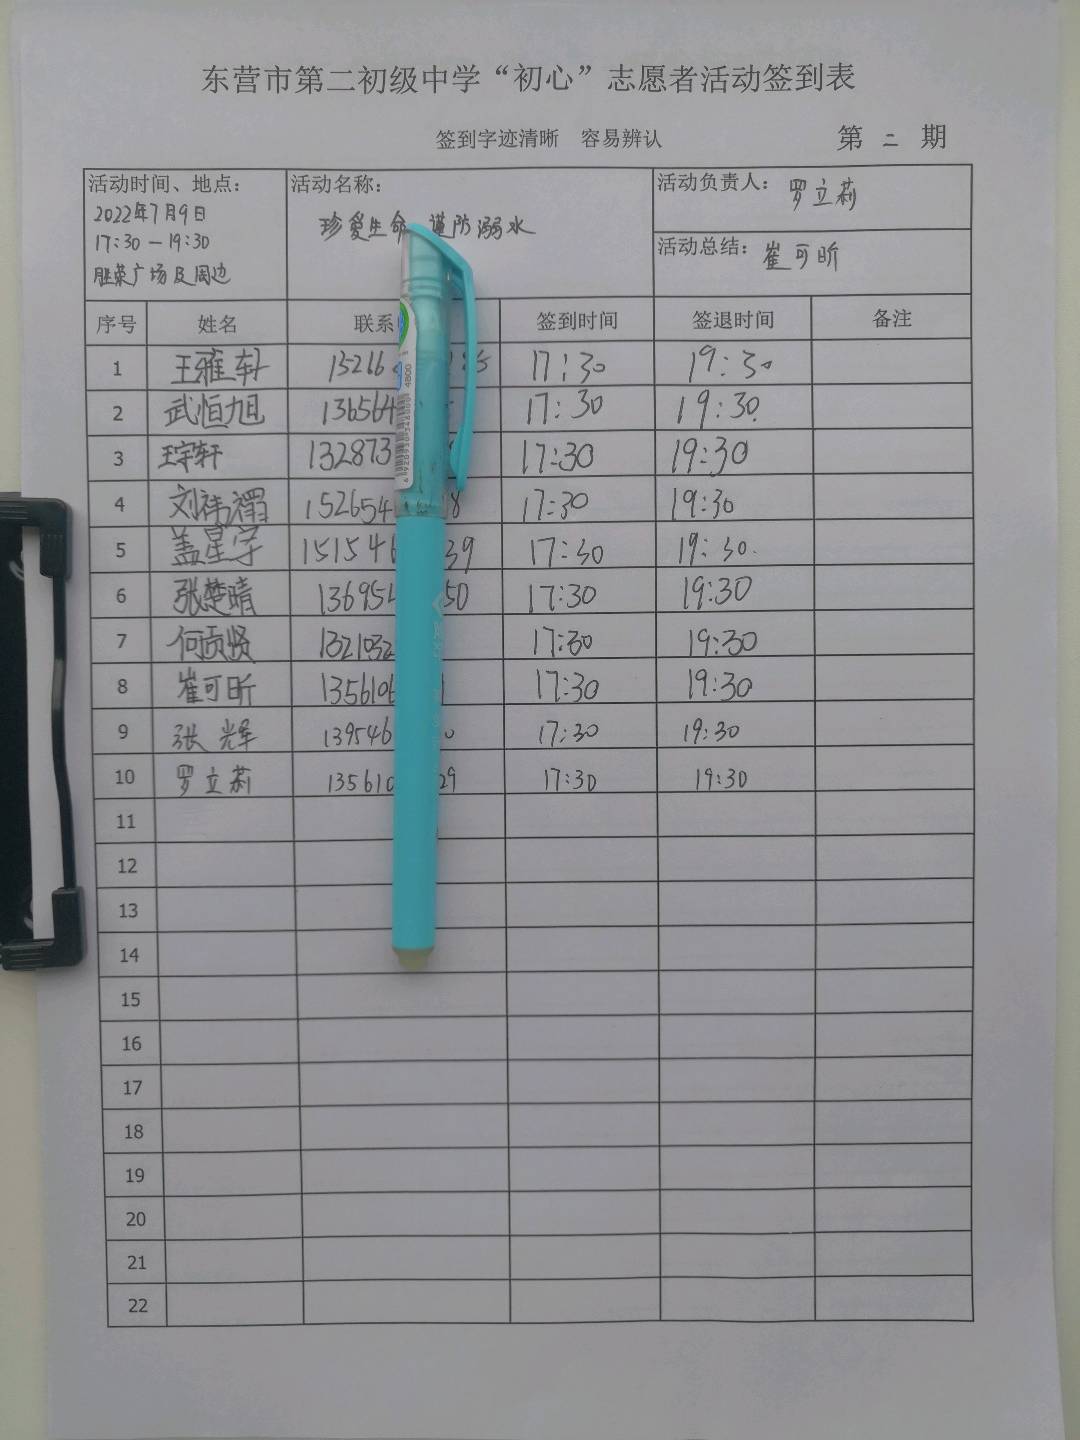 东营市第二初级中学“初心”志愿者活动签到表
签到字迹清晰 容易辨认
第 二 期
活动时间、地点：
2022年7月9日
17:30－19:30
胜荣广场及周边
活动名称：
珍爱生命 谨防溺水
活动负责人：罗立莉
活动总结：崔可昕
序号 姓名 联系 签到时间 签退时间 备注
1 王雅轩 15266 17:30 19:30
2 武恒旭 136564 17:30 19:30
3 王宇轩 132873 17:30 19:30
4 刘祎 152654 18 17:30 19:30
5 盖星 151546 39 17:30 19:30
6 张楚晴 136954 50 17:30 19:30
7 何贡贤 1321032 17:30 19:30
8 崔可昕 1356106 17:30 19:30
9 张辉 139546 0 17:30 19:30
10 罗立莉 135610 29 17:30 19:30
11
12
13
14
15
16
17
18
19
20
21
22